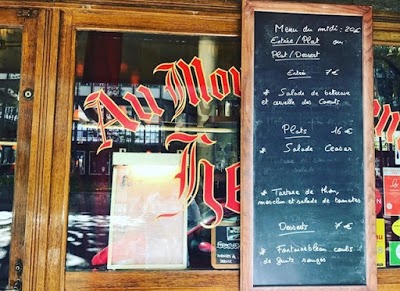 Au Mon
He
Menu du midi : 20€
Entrée / Plat ou
Plat / Dessert
Entrée 7€
* Salade de betterave
et cervelle des Canuts
Plats 16€
* Salade Ceasar
* Tartare de thon,
mesclun et salade de tomates
Desserts 7€
* Fontainebleau coulis
de fruits rouges